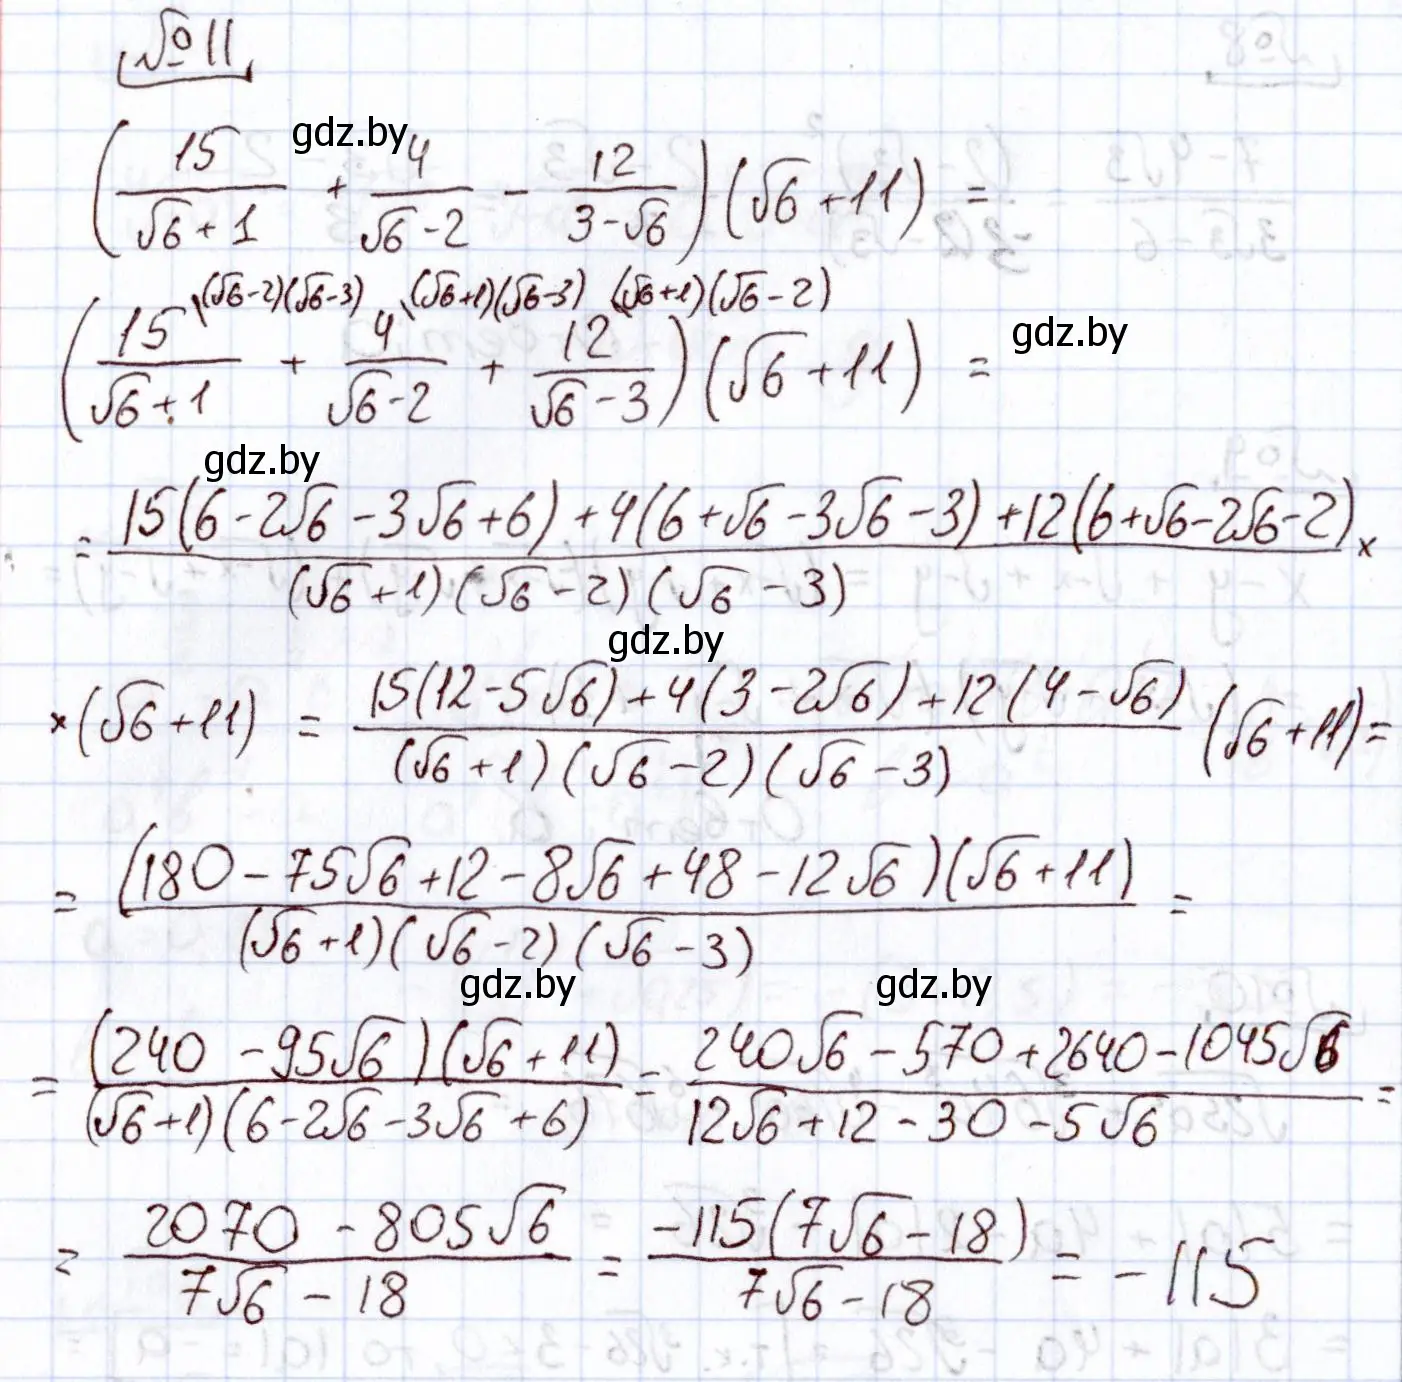 №11
gdz.by
(15/(√6+1) + 4/(√6-2) - 12/(3-√6))(√6+11) =
(15\(√6-2)(√6-3)/(√6+1) + 4\(√6+1)(√6-3)/(√6-2) + 12\(√6+1)(√6-2)/(√6-3))(√6+11) =
gdz.by
gdz.by
= (15(6-2√6-3√6+6)+4(6+√6-3√6-3)+12(6+√6-2√6-2))/((√6+1)(√6-2)(√6-3)) ×
gdz.by
×(√6+11) = (15(12-5√6)+4(3-2√6)+12(4-√6))/((√6+1)(√6-2)(√6-3)) (√6+11) =
= ((180-75√6+12-8√6+48-12√6)(√6+11))/((√6+1)(√6-2)(√6-3)) =
gdz.by gdz.by
= ((240-95√6)(√6+11))/((√6+1)(6-2√6-3√6+6)) = (240√6-570+2640-1045√6)/(12√6+12-30-5√6) =
= (2070-805√6)/(7√6-18) = (-115(7√6-18))/(7√6-18) = -115